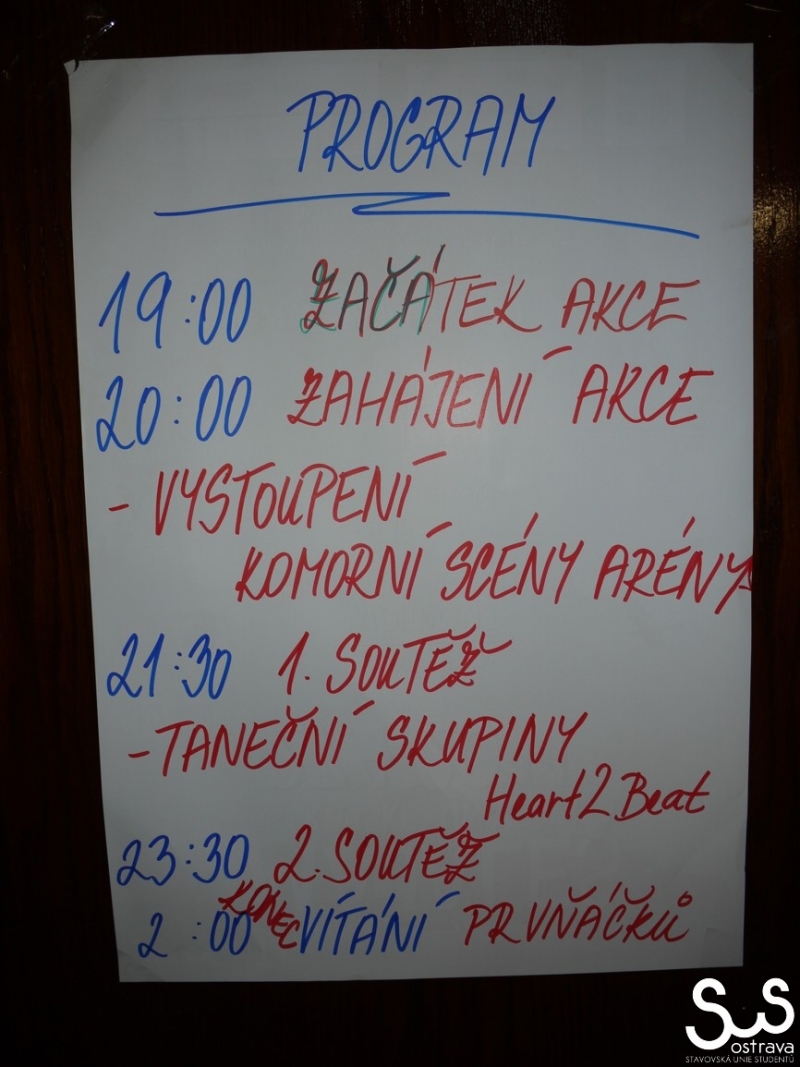 PROGRAM
19:00 ZAČÁTEK AKCE
20:00 ZAHÁJENÍ AKCE
- VYSTOUPENÍ
KOMORNÍ SCÉNY ARÉNY
21:30 1. SOUTĚŽ
- TANEČNÍ SKUPINY
Heart2Beat
23:30 2. SOUTĚŽ
2:00 KONEC VÍTÁNÍ PRVŇÁČKŮ
SUS
ostrava
STAVOVSKÁ UNIE STUDENTŮ